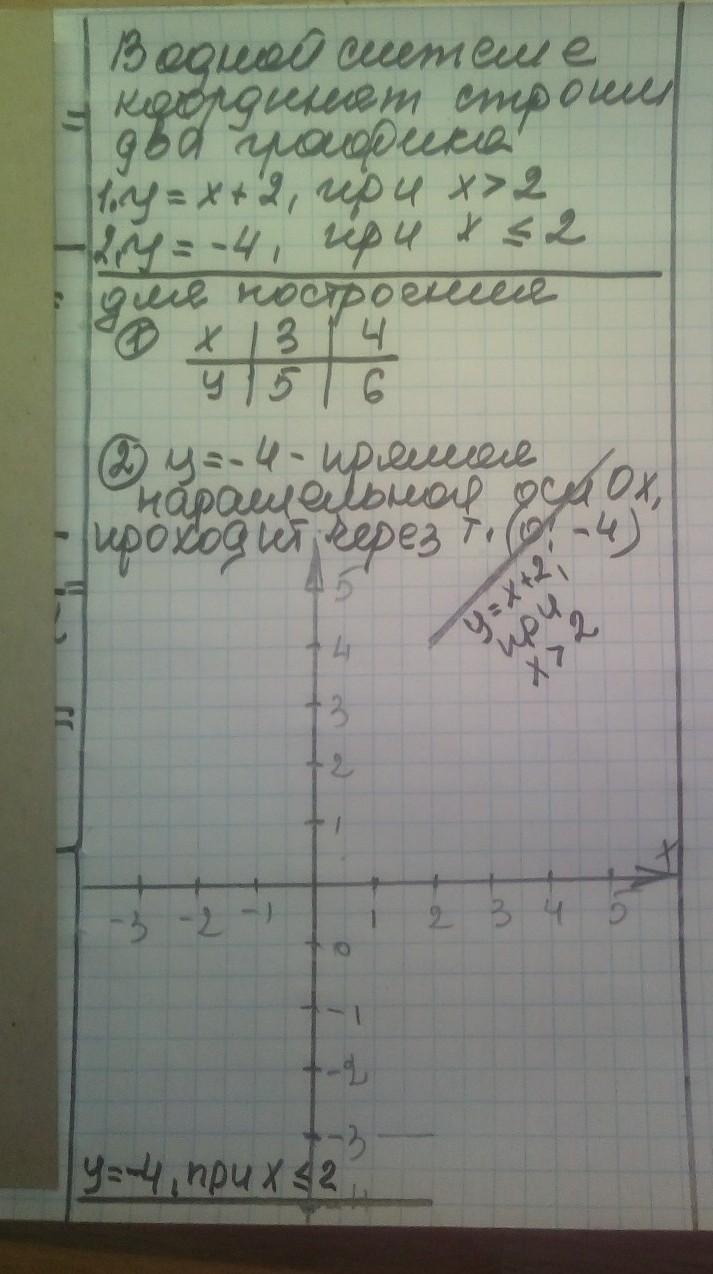 В одной системе
координат строим
два графика
1. y = x + 2, при x > 2
2. y = -4, при x ≤ 2
для построения
① x | 3 | 4
y | 5 | 6
② y = -4 - прямая
параллельная оси Ox,
проходит через т. (0; -4)
y = x + 2,
при
x > 2
5
4
3
2
1
x
-3 -2 -1 1 2 3 4 5
0
-1
-2
-3
y = -4, при x ≤ 2
-4